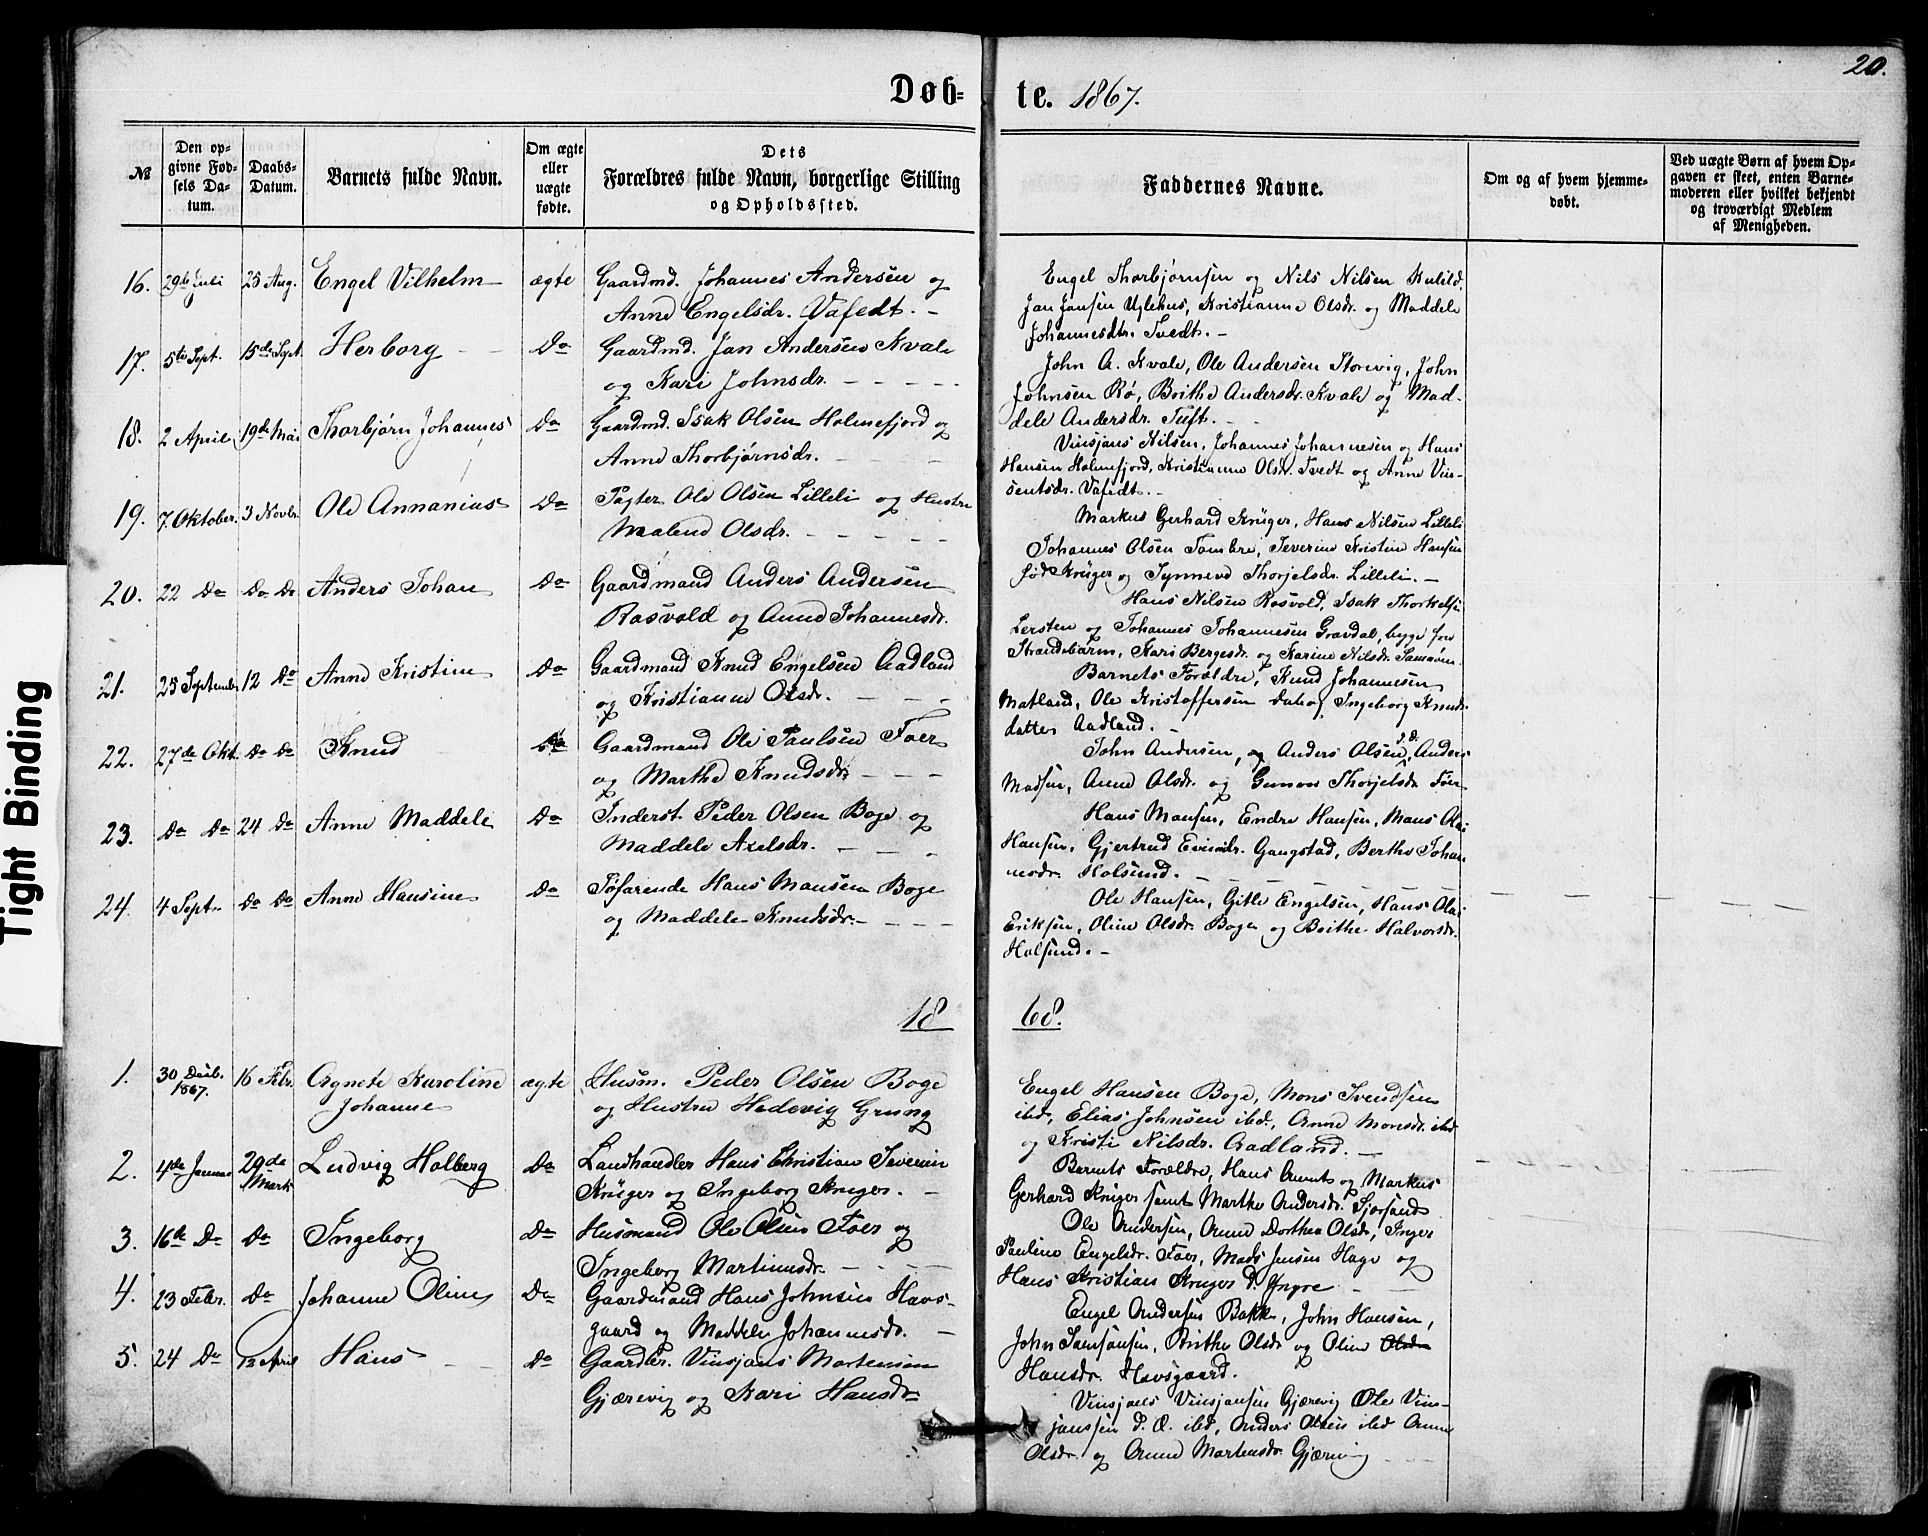 20.
Døb-te. 1867.
№
Den opgivne Fødsels Datum.
Daabs-Datum.
Barnets fulde Navn.
Om ægte eller uægte fødte.
Dets Forældres fulde Navn, borgerlige Stilling og Opholdssted.
Faddernes Navne.
Om og af hvem hjemmedøbt.
Ved uægte Børn af hvem Opgaven er skeet, enten Barnemoderen eller hvilket bekjendt og troværdigt Medlem af Menigheden.
16. 29de Juli 25 Aug. Engel Vilhelm ægte Gaardmd. Johannes Andersen og
Anne Engelsdr. Vafedt. -
Engel Thorbjørnsen og Nils Nilsen
Jan Jansen Uglehus, Kristianne Olsdr. og Maddele
Johannesdtr. Tvedt. -
17. 5te Sept. 15de Sept. Herborg Do Gaardmd. Jan Andersen Kvale
og Kari Johnsdr. - - - -
John A. Kvale, Ole Andersen Storevig, John
Johnsen Rø, Brithe Andersdr. Kvale og Mad-
dele Andersdr. Tuft. -
18. 2 April 19de Mai Thorbjørn Johannes Do Gaardmd. Isak Olsen Holmefjord og
Anne Thorbjørnsdr. - - -
Vinsjans Nilsen, Johannes Johannesen og Hans
Hansen Holmefjord, Kristianne Olsdr. Tvedt og Anne Vin-
sentsdr. Vafedt. -
19. 7. Oktober. 3 Novbr. Ole Annanias Do Pagter Ole Olsen Lilleli og Hustru
Malene Olsdr. - - - - -
Markus Gerhard Krüger, Hans Nilsen Lilleli
Johannes Olsen Tombre, Severine Kristine Hansen
fød Krüger og Synneve Thorjelsdr. Lilleli. -
20. 22 Do Do Do Anders Johan Do Gaardmand Anders Andersen
Rosvold og Anne Johannesdr.
Hans Nilsen Rosvold, Isak Thorkelsen
Lersten og Johannes Johannesen Gravdal, begge fra
Strandebarm, Kari Bergesdr. og Karine Nilsdr.
21. 25 September 12 Do Anne Kristine Do Gaardmand Knud Engelsen Aadland
og Kristianne Olsdr. - - -
Barnets Forældre, Knud Johannesen
Matland, Ole Kristoffersen og Ingeborg Knuds-
datter Aadland. -
22. 27de Okt. Do Do Knud Do Gaardmand Ole Paulsen Foer
og Marthe Knudsdr. - - -
John Andersen, og Anders Olsen, Anders
Madsen, Anne Olsdr. og Gunvor Thorjelsdr. Foer
23. Do Do 24 Do Anne Maddele Do Inderst Peder Olsen Boge og
Maddele Axelsdr. - - -
Hans Monsen, Endre Hansen, Mons Olai
Hansen, Gjertrud Gangstad, Berthe Johan-
nesdr. Holsund. -
24. 4 Sept. Do Do Anne Hansine Do Søfarende Hans Monsen Boge
og Maddele Knudsdr. - - -
Ole Hansen, Gitle Engelsen, Hans Olai
Eriksen, Oline Olsdr. Boge og Brithe Halvorsdr.
Holsund. -
18 68.
1. 30 Decb. 1867. 16 Febr. Agnete Karoline
Johanne ægte Husm. Peder Olsen Boge
og Hustru Hedevig Grung
Engel Hansen Boge, Mons Svendsen
ibd, Elias Johnsen ibd., Anne Monsdr. ibd
og Kristi Nilsdr. Aadland. -
2. 4de Januar 29de Marts Ludvig Holberg Do Landhandler Hans Christian Severin
Krüger og Ingeborg Kruger. -
Barnets Forældre, Hans og Markus
Gerhard Krüger samt Marthe Andersdr.
3. 16de Do Do Ingeborg Do Husmand Ole Olsen Foer og
Ingeborg Martinsdr. - - - -
Ole Andersen, Anne Dorthea Olsdr, Inger
Pauline Engelsdr. Foer, Mads Jensen Hage og
Hans Kristian Krüger d. Yngre - -
4. 23 Febr. Do Johanne Oline Do Gaardmand Hans Johnsen Havs-
gaard og Maddele Johannesdr. -
Engel Andersen Bakke, John Hansen,
John Samsonsen, Brithe Olsdr og Oline Olsdr
Hansdr. Havsgaard.
5. 24 Do 12 April Hans Do Gaardbr. Vinsjans Mortensen
Gjærevig og Kari Hansdr
Vinsjans Vinsjansen Gjærevig Ole Vins-
janssen d. Æ. ibd, Anders Olsen ibd Anne
Olsdr. og Anne Mortensdr. Gjærevig
Tight Binding